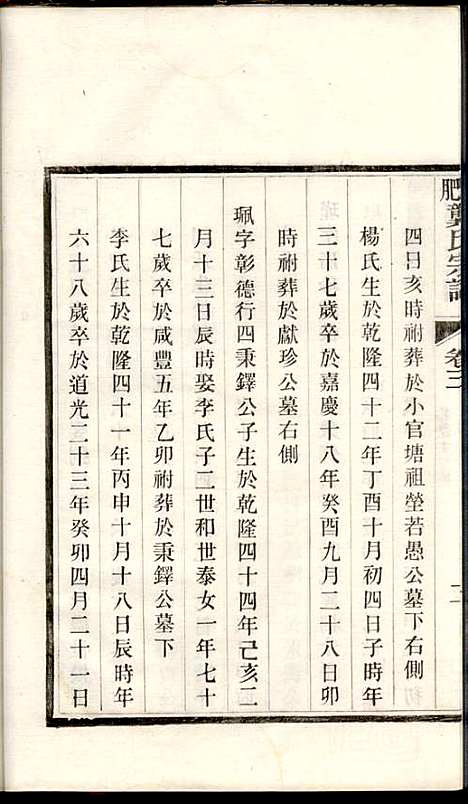 肥龔氏宗譜
卷三
四日亥時祔葬於小官塘祖塋若愚公墓下右側
楊氏生於乾隆四十二年丁酉十月初四日子時年
三十七歲卒於嘉慶十八年癸酉九月二十八日卯
時祔葬於獻珍公墓右側
珮字彰德行四秉鐸公子生於乾隆四十四年己亥二
月十三日辰時娶李氏子二世和世泰女一年七十
七歲卒於咸豐五年乙卯祔葬於秉鐸公墓下
李氏生於乾隆四十一年丙申十月十八日辰時年
六十八歲卒於道光二十三年癸卯四月二十一日